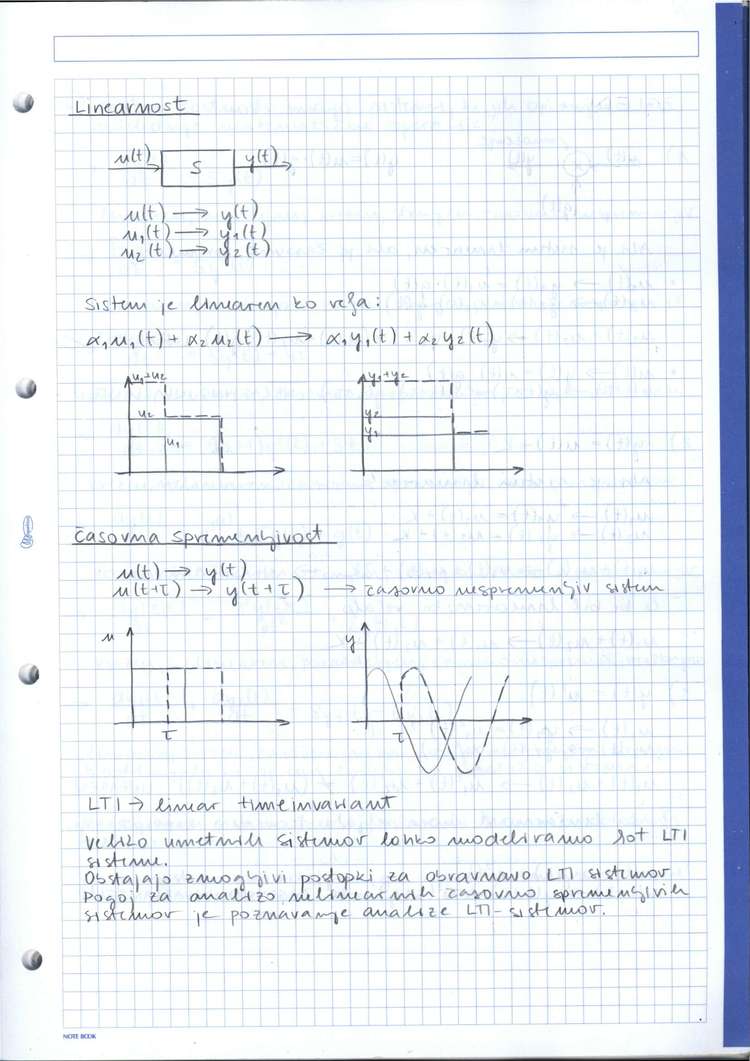 Linearnost
u(t) S y(t)
u(t) → y(t)
u₁(t) → y₁(t)
u₂(t) → y₂(t)
Sistem je linearen ko velja:
α₁u₁(t) + α₂u₂(t) → α₁y₁(t) + α₂y₂(t)
u₁+u₂ y₁+y₂
u₂ y₂
u₁ y₁
Časovna spremenljivost
u(t) → y(t)
u(t+τ) → y(t+τ) → časovno nespremenljiv sistem
u y
τ τ
LTI → linear timeinvariant
Veliko umetnih sistemov lahko modeliramo kot LTI
sisteme.
Obstajajo zmogljivi postopki za obravnavo LTI sistemov
Pogoj za analizo nelinearnih časovno spremenljivih
sistemov je poznavanje analize LTI-sistemov.
NOTE BOOK